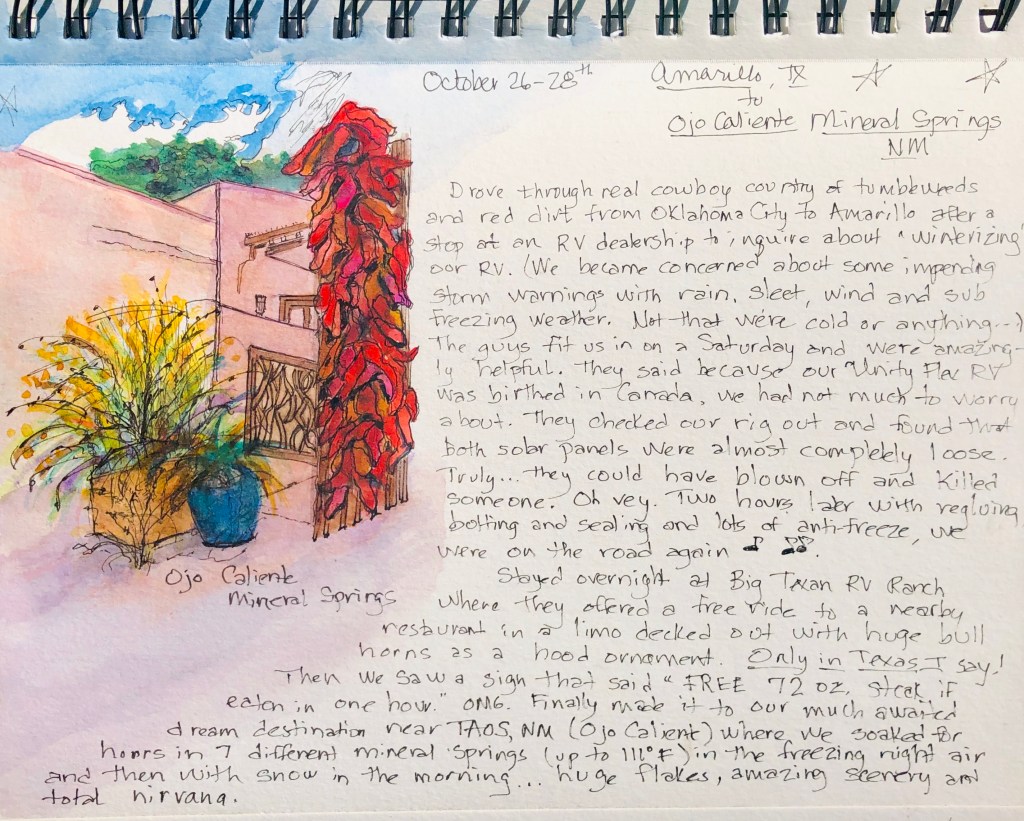 October 26-28th
Amarillo, TX
to
Ojo Caliente Mineral Springs
NM
Drove through real cowboy country of tumbleweeds
and red dirt from Oklahoma City to Amarillo after a
stop at an RV dealership to inquire about "winterizing"
our RV. (We became concerned about some impending
storm warnings with rain, sleet, wind and sub
freezing weather. Not that we're cold or anything...)
The guys fit us in on a Saturday and were amazing-
ly helpful. They said because our Unity Flex RV
was birthed in Canada, we had not much to worry
about. They checked our rig out and found that
both solar panels were almost completely loose.
Truly... they could have blown off and killed
someone. Oh vey. Two hours later with regluing
bolting and sealing and lots of anti-freeze, we
were on the road again ♪ ♫.
Stayed overnight at Big Texan RV Ranch
where they offered a free ride to a nearby
restaurant in a limo decked out with huge bull
horns as a hood ornament. Only in Texas, I say!
Then we saw a sign that said "FREE 72 oz. steak if
eaten in one hour." OMG. Finally made it to our much awaited
dream destination near TAOS, NM (Ojo Caliente) where we soaked for
hours in 7 different mineral springs (up to 111°F) in the freezing night air
and then with snow in the morning... huge flakes, amazing scenery and
total nirvana.
Ojo Caliente
Mineral Springs